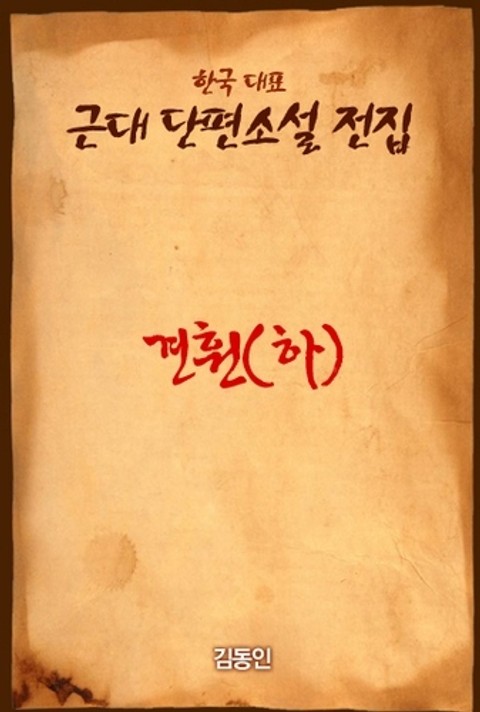 한국 대표
근대 단편소설 전집
견훤(하)
김동인